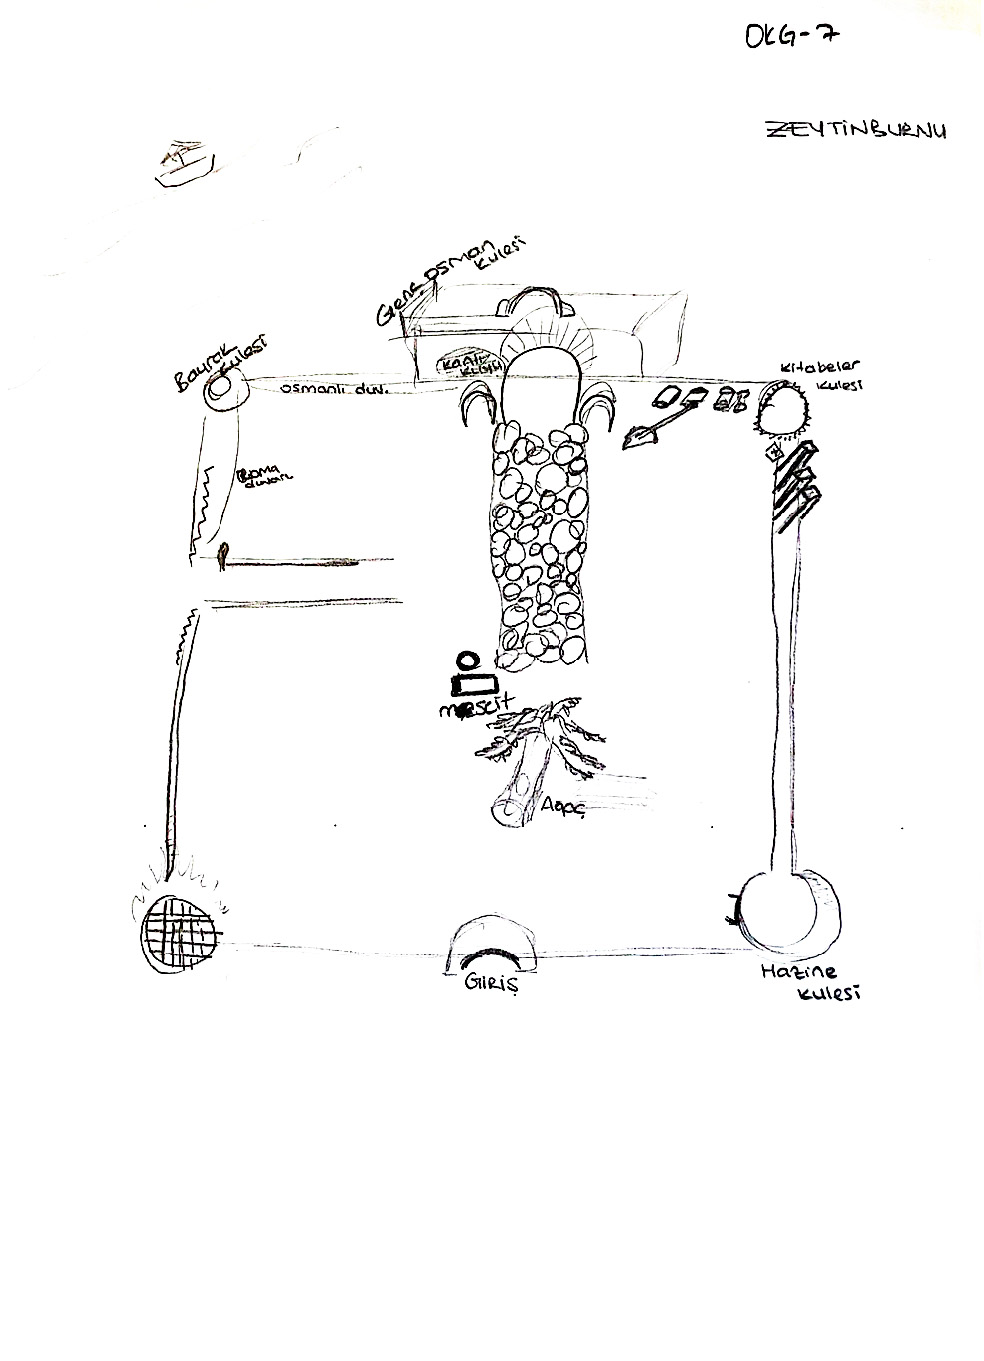 OKG-7
ZEYTİNBURNU
Genç osman
kulesi
Bayrak
kulesi
kanlı
kuyu
osmanlı duv.
kitabeler
kulesi
Roma
duvarı
mescit
Ağaç
GİRİŞ
Hazine
kulesi